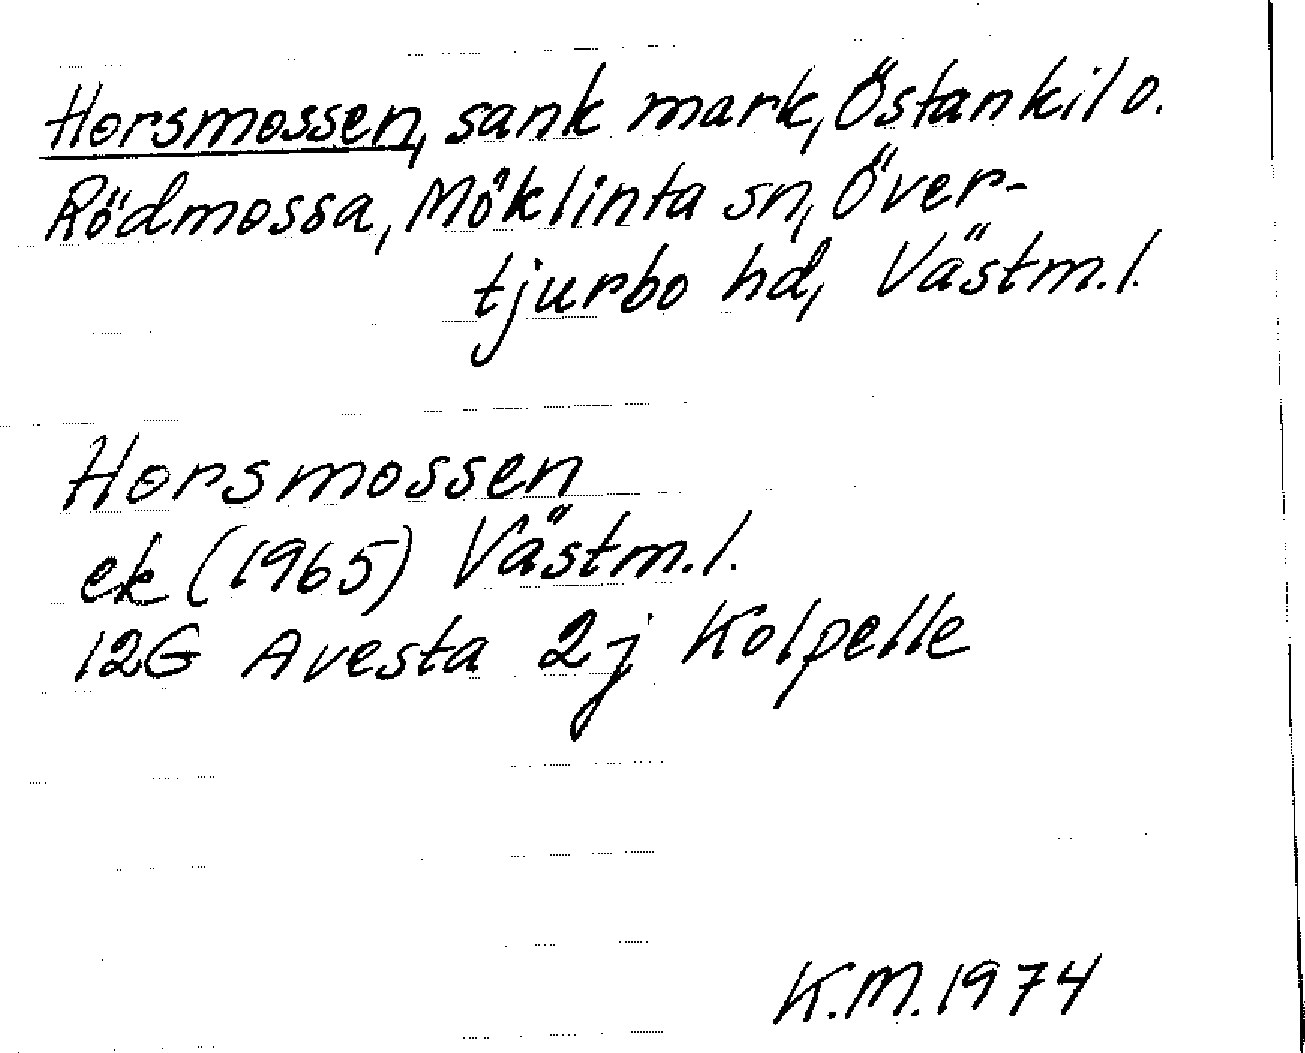 Horsmossen, sank mark, Östankil o.
Rödmossa, Möklinta sn, Över-
tjurbo hd, Västm.l.
Horsmossen
ek (1965) Västm.l.
12G Avesta 2j Kolpelle
K.M. 1974